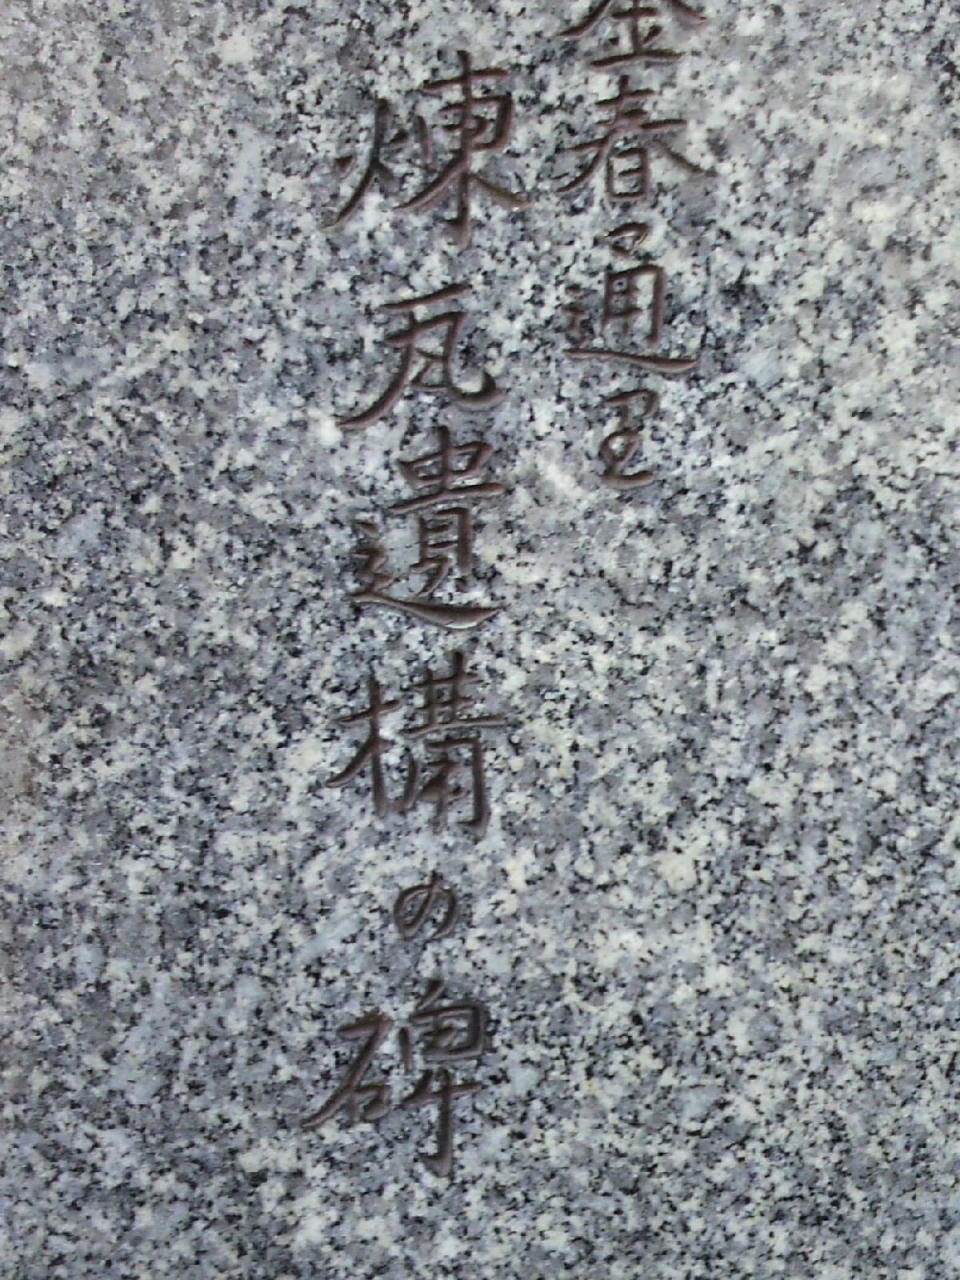 金春通里
煉瓦遺構の碑